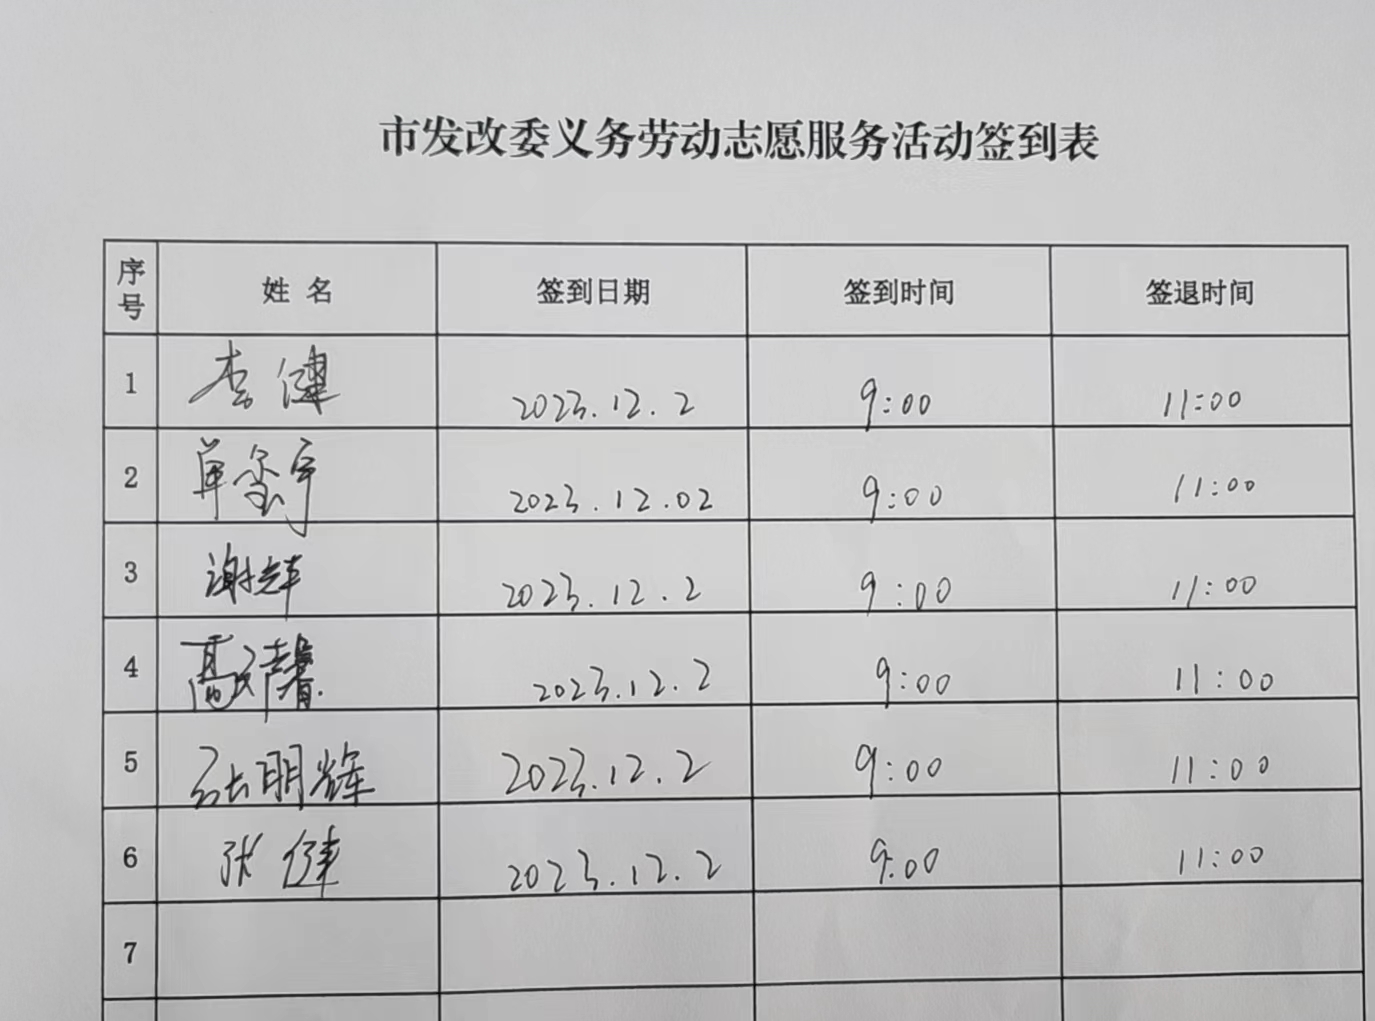 市发改委义务劳动志愿服务活动签到表
序号 姓 名 签到日期 签到时间 签退时间
1 李健 2023.12.2 9:00 11:00
2 单玺宇 2023.12.02 9:00 11:00
3 谢辉 2023.12.2 9:00 11:00
4 高 馨 2023.12.2 9:00 11:00
5 张明辉 2023.12.2 9:00 11:00
6 张健 2023.12.2 9:00 11:00
7